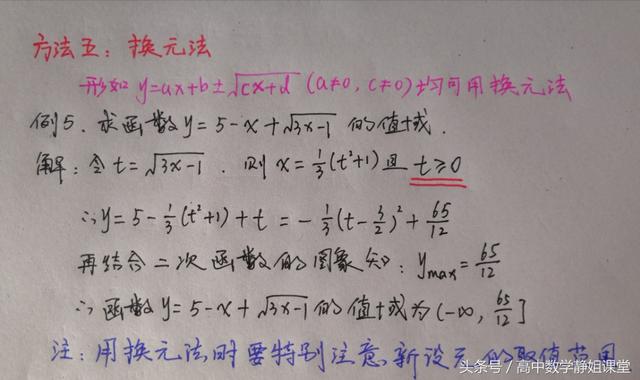 方法五：换元法
形如 y=ax+b±√(cx+d) (a≠0, c≠0) 均可用换元法
例5. 求函数y=5-x+√(3x-1) 的值域.
解：令 t=√(3x-1) . 则 x=1/3(t²+1)且 t≥0
∴y=5-1/3(t²+1)+t=-1/3(t-3/2)²+65/12
再结合二次函数的图象知：ymax=65/12
∴函数y=5-x+√(3x-1) 的值域为(-∞, 65/12]
注：用换元法时要特别注意新设元的取值范围
头条号／高中数学静姐课堂